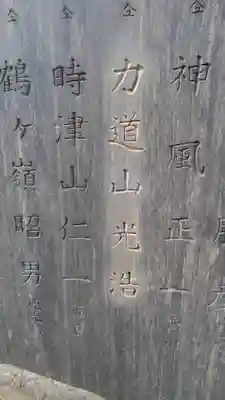 仝 神風正一
仝 力道山光浩
仝 時津山仁一
仝 鶴ヶ嶺昭男